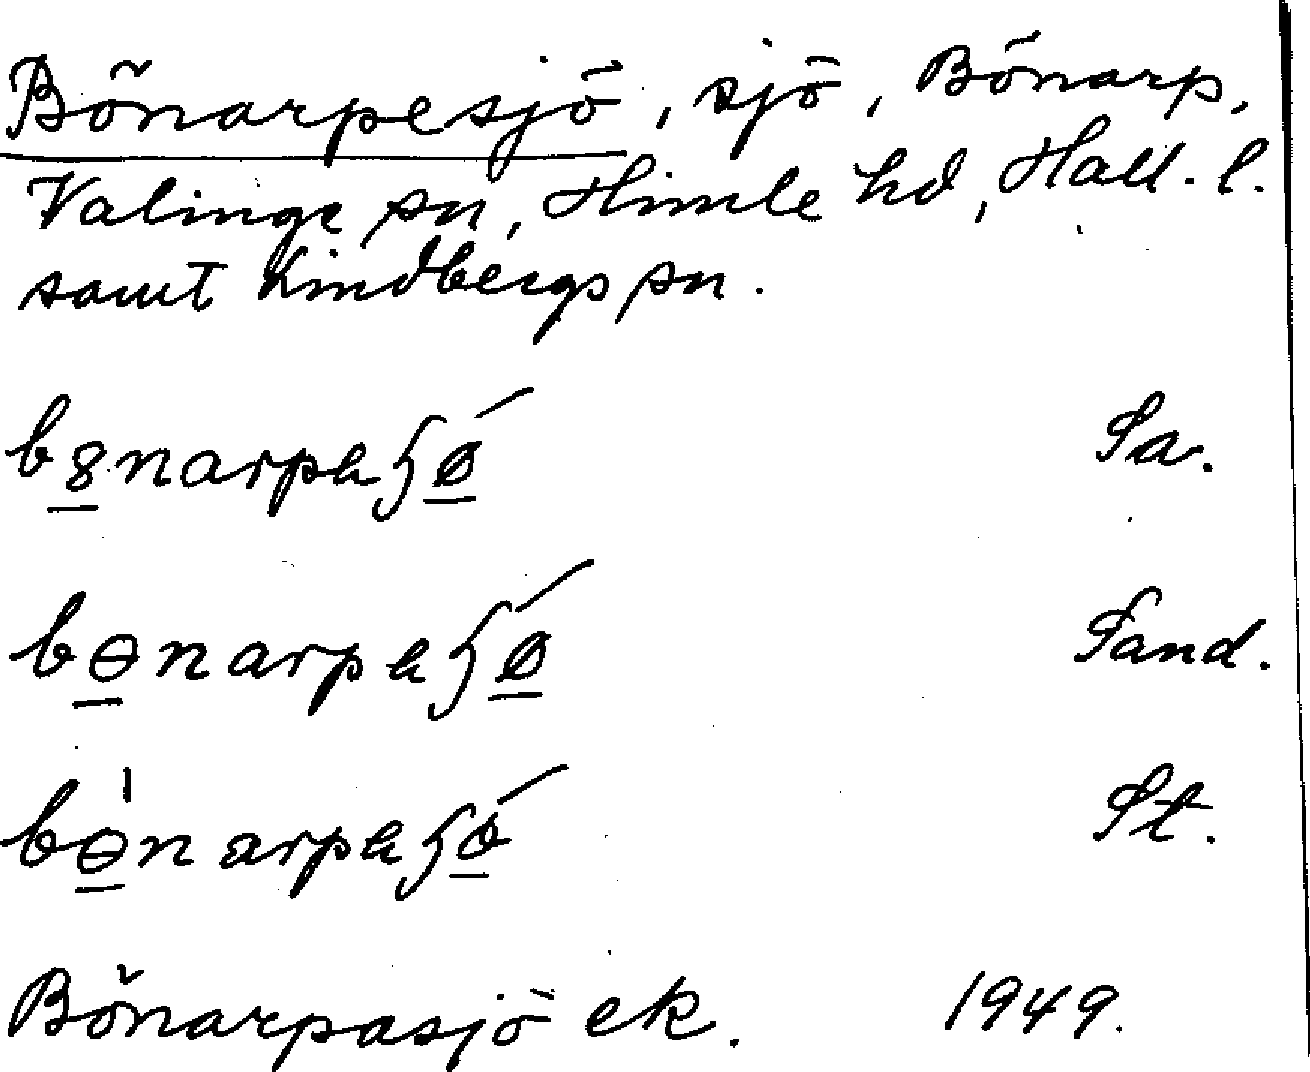 Bönarpesjö, sjö, Bönarp,
Valinge sn, Himle hd, Hall. l.
samt Lindbergs sn.
bɵnarpaʃǿ Sa.
bɵnarpaʃǿ Sand.
bɵ̍narpaʃǿ St.
Bönarpasjö ek. 1949.